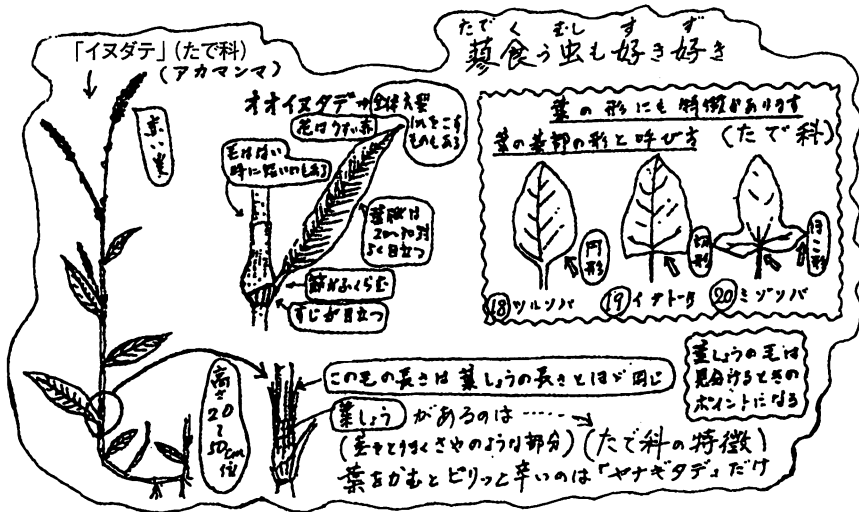 たで く むし す ず
蓼食う虫も好き好き
「イヌダテ」(たで科)
(アカマンマ)
赤い実
オオイヌタデ→全体大型
1mをこすものもある
花はうすい赤
毛はない
時に短いのもある
葉脈は
20〜30対
よく目立つ
節がふくらむ
すじが目立つ
葉の形にも特徴があります
葉の基部の形と呼び方 (たで科)
円形
切形
ほこ形
⑱ツルソバ
⑲イタドリ
⑳ミゾソバ
高さ20〜50cm位
この毛の長さは葉しょうの長さとほぼ同じ
葉しょうの毛は
見分けるときの
ポイントになる
葉しょうがあるのは
(茎をとりまくさやのような部分)(たで科の特徴)
葉をかむとピリッと辛いのは「ヤナギタデ」だけ